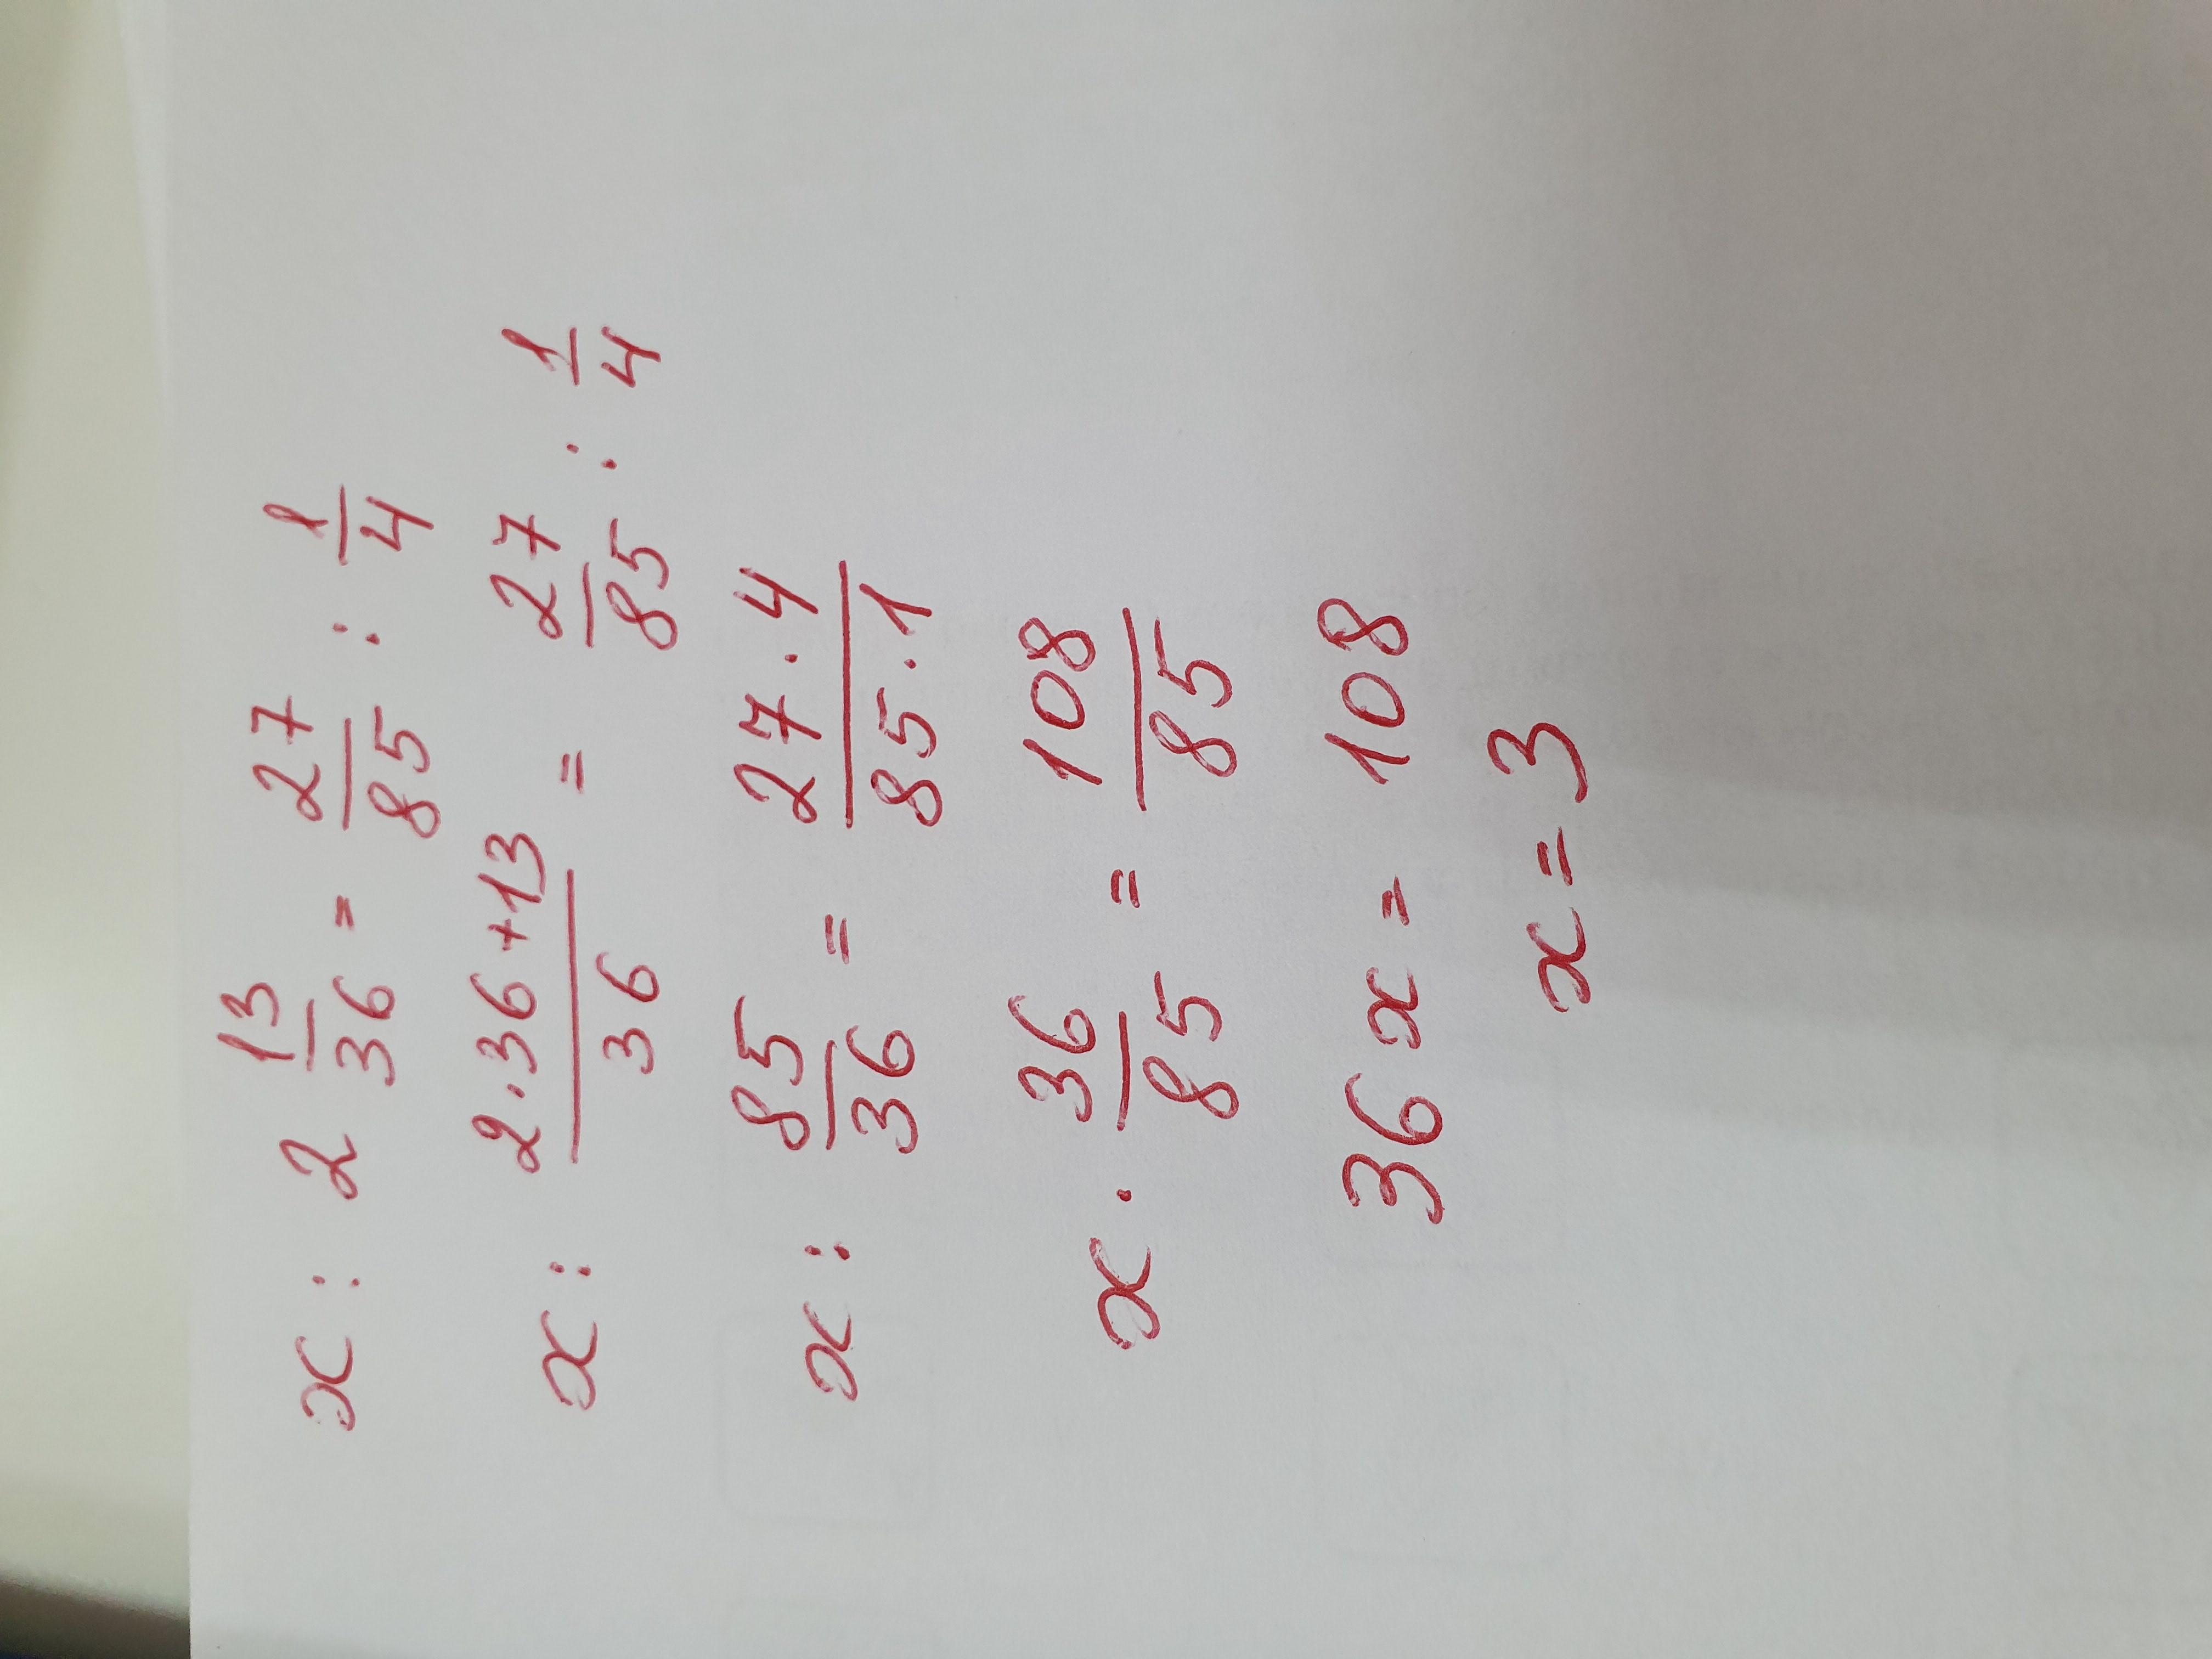 x : 2 13/36 = 27/85 : 1/4
x : (2·36+13)/36 = 27/85 : 1/4
x : 85/36 = (27·4)/(85·1)
x · 36/85 = 108/85
36x = 108
x = 3